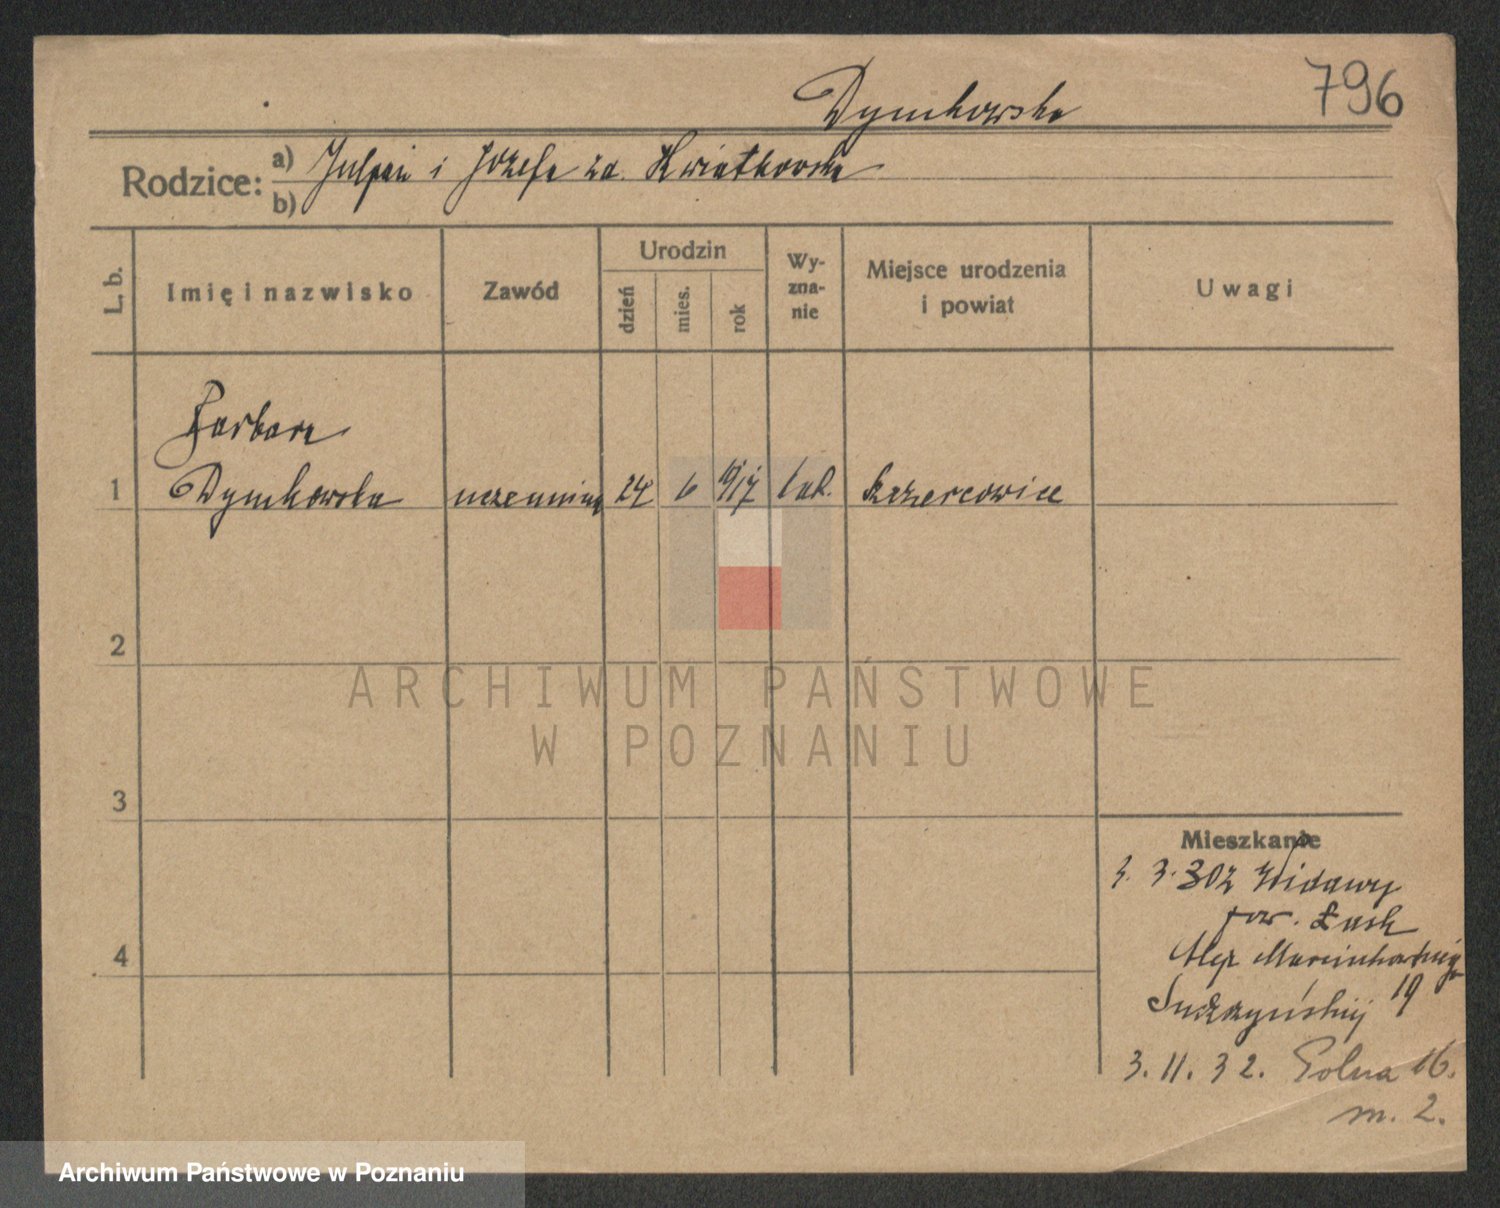 796
Dymkowska
Rodzice: a) i Józefa zd. Kwiatkowska
b)
L. b. Imię i nazwisko Zawód Urodzin dzień mies. rok Wy-zna-nie Miejsce urodzenia i powiat Uwagi
Barbara
1 Dymkowska uczennica 24 6 1917 kat.
2
ARCHIWUM PAŃSTWOWE
W POZNANIU
3
Mieszkanie
3. 302 Widawy
pow. Łask
4 Aleje Marcinkowskiego
19
3.11.32. Polna 16.
m. 2.
Archiwum Państwowe w Poznaniu